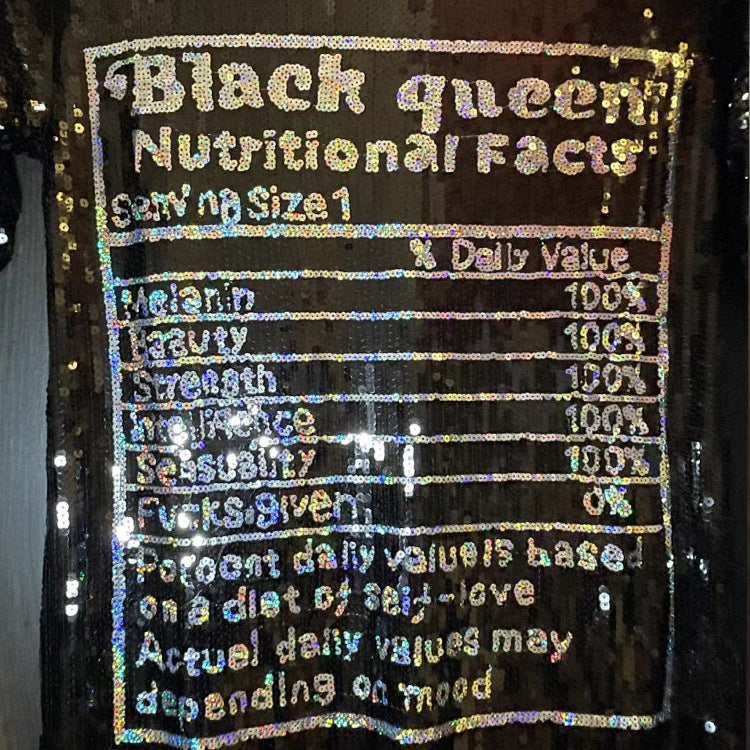 Black queen
Nutritional Facts
Serving Size 1
% Daily Value
Melanin 100%
Beauty 100%
Strength 100%
Intelligence 100%
Sensuality 100%
Fucks given 0%
Percent daily value is based
on a diet of self-love
Actuel daily values may
depending on mood